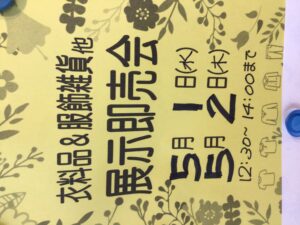 衣料品&服飾雑貨 他
展示即売会
5月1日(水)
5月2日(木)
12:30~14:00まで